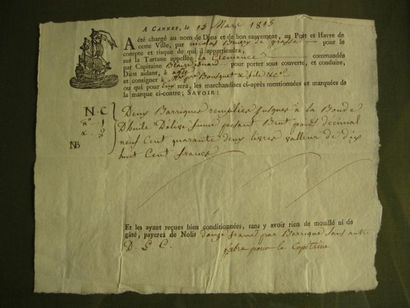 A CANNES, le 13 Mars 1815
A été chargé au nom de Dieu et de bon sauvement, au Port et Havre de
cette Ville, par de Grasse pour le
compte et risque de qui il appartiendra,
sur la Tartane appellée La Clemence commandée
par Capitaine pour porter sous couverte, et conduire,
Dieu aidant, à
et consigner à Bousquet & fils & Cie.
ou qui pour eux sera, les marchandises ci-après mentionnées et marquées de
la marque ci-contre; SAVOIR:
N C
N° 1
2
NB
Deux Barriques remplies jusques à la Bonde
D'huile D'olive fine pesant Brut poids decimal
neuf Cent quarante deux livres valleur de dix
huit Cent francs
Et les ayant reçues bien conditionnées, sans y avoir rien de mouillé ni de
gâté, payerez de Nolis par Barrique
D. S. C. pour le Capitaine